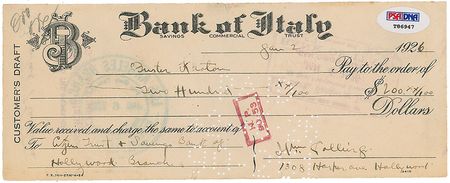 PSA/DNA
T86947
B
Bank of Italy
SAVINGS COMMERCIAL TRUST
CUSTOMER'S DRAFT
Jan 2 1926
Pay to the order of
Buster Keaton $200.00/100
Two Hundred xx/100 Dollars
Value received and charge the same to account of
To Citizens Trust & Savings Bank of
Hollywood Branch
1308 Harper Ave Hollywood